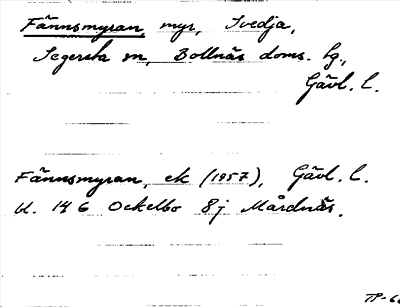 Fännsmyran, myr, Svedja,
Segersta sn, Bollnäs doms. hg.,
Gävl. l.
Fännsmyran, ek (1957), Gävl. l.
bl. 14 G Ockelbo 8j Mårdnäs.